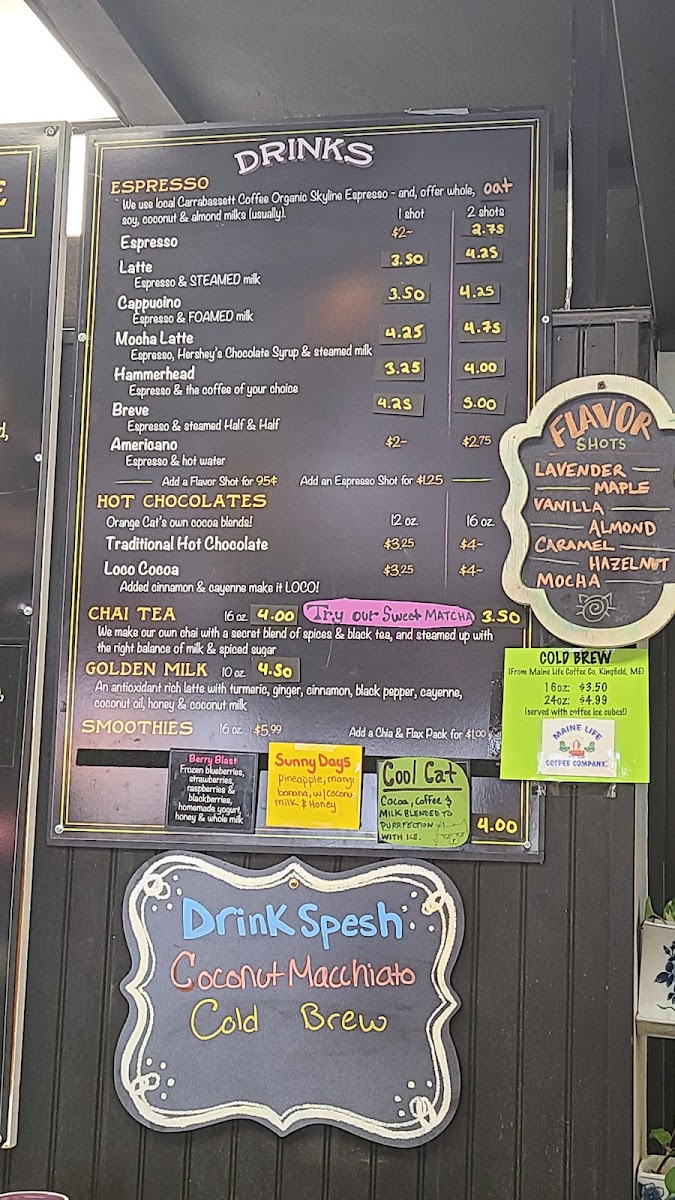 DRINKS
ESPRESSO
We use local Carrabassett Coffee Organic Skyline Espresso - and, offer whole, oat
soy, coconut & almond milks (usually).
1 shot 2 shots
Espresso $2~ 2.75
Latte 3.50 4.25
Espresso & STEAMED milk
Cappucino 3.50 4.25
Espresso & FOAMED milk
Mocha Latte 4.25 4.75
Espresso, Hershey's Chocolate Syrup & steamed milk
Hammerhead 3.25 4.00
Espresso & the coffee of your choice
Breve 4.25 5.00
Espresso & steamed Half & Half
Americano $2~ $2.75
Espresso & hot water
Add a Flavor Shot for 95¢ Add an Espresso Shot for $1.25
HOT CHOCOLATES
Orange Cat's own cocoa blends! 12 oz 16 oz
Traditional Hot Chocolate $3.25 $4~
Loco Cocoa $3.25 $4~
Added cinnamon & cayenne make it LOCO!
CHAI TEA 16 oz 4.00 Try our Sweet MATCHA 3.50
We make our own chai with a secret blend of spices & black tea, and steamed up with
the right balance of milk & spiced sugar
GOLDEN MILK 10 oz 4.50
An antioxidant rich latte with turmeric, ginger, cinnamon, black pepper, cayenne,
coconut oil, honey & coconut milk
SMOOTHIES 16 oz $5.99 Add a Chia & Flax Pack for $1.00
Berry Blast
Frozen blueberries,
strawberries,
raspberries &
blackberries,
homemade yogurt,
honey & whole milk
Sunny Days
pineapple, mango
banana, w/coconut
milk & Honey
Cool Cat
Cocoa, Coffee &
MILK BLENDED TO
PURRFECTION
WITH ICE.
4.00
FLAVOR
SHOTS
LAVENDER
MAPLE
VANILLA
ALMOND
CARAMEL
HAZELNUT
MOCHA
COLD BREW
(From Maine Life Coffee Co, Kingfield, ME)
16oz: $3.50
24oz: $4.99
(served with coffee ice cubes!)
MAINE LIFE
COFFEE COMPANY
Drink Spesh
Coconut Macchiato
Cold Brew